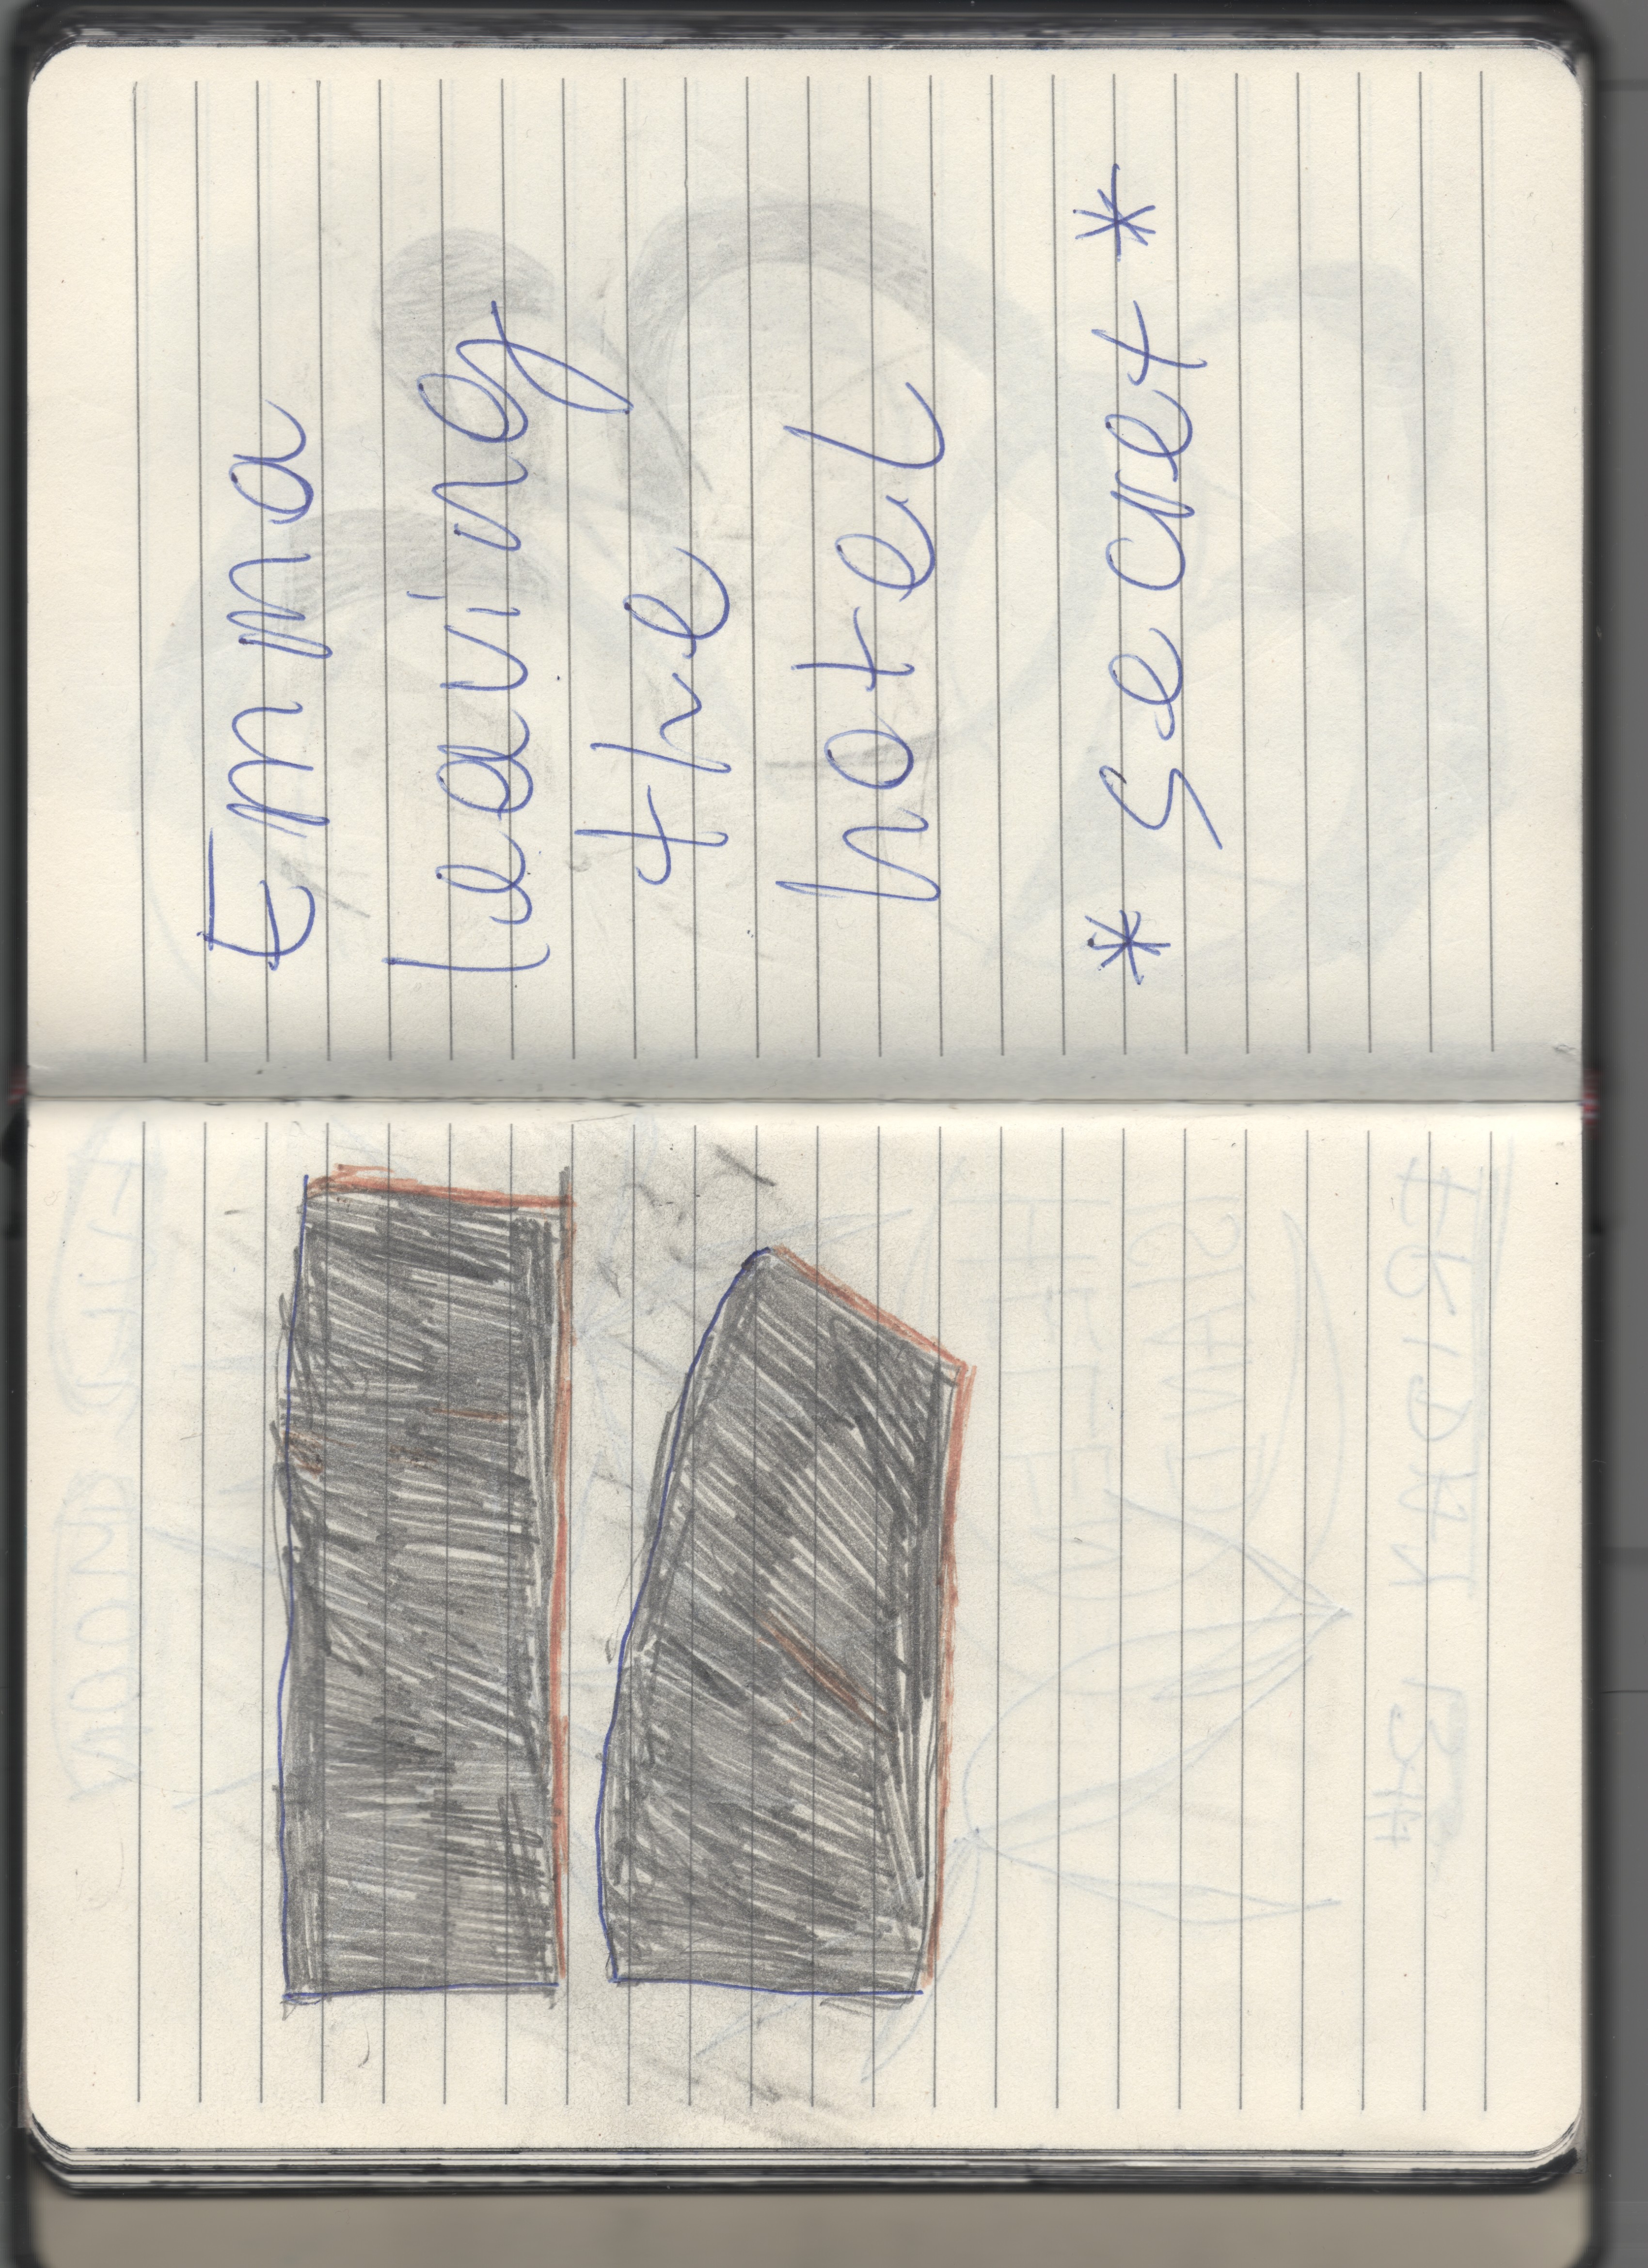 Emma
leaving
the
hotel
* secret *